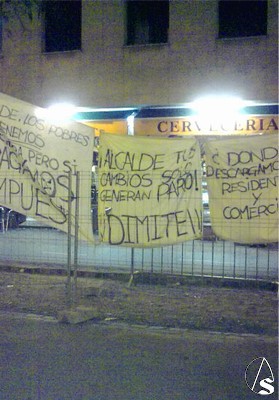 CERVECERIA
DE LOS POBRES
TENEMOS
PARA PERO SI
¡ALCALDE TUS
CAMBIOS SOLO
GENERAN PARO!
¡¡DIMITE!!
¿DONDE
DESCARGAMOS
RESIDEN
Y
COMERCI